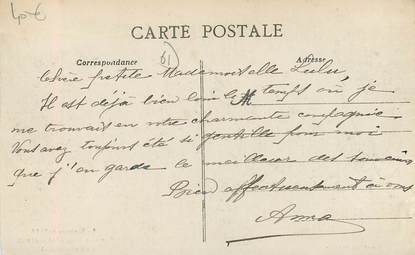 40 €
CARTE POSTALE
Correspondance
61
Adresse
Chère petite Mademoiselle Lulu,
Il est déjà bien loin le temps où je
me trouvais en votre charmante compagnie
Vous avez toujours été si gentille pour moi
que j'en garde le meilleur des souvenirs
Bien affectueusement à vous
Anna